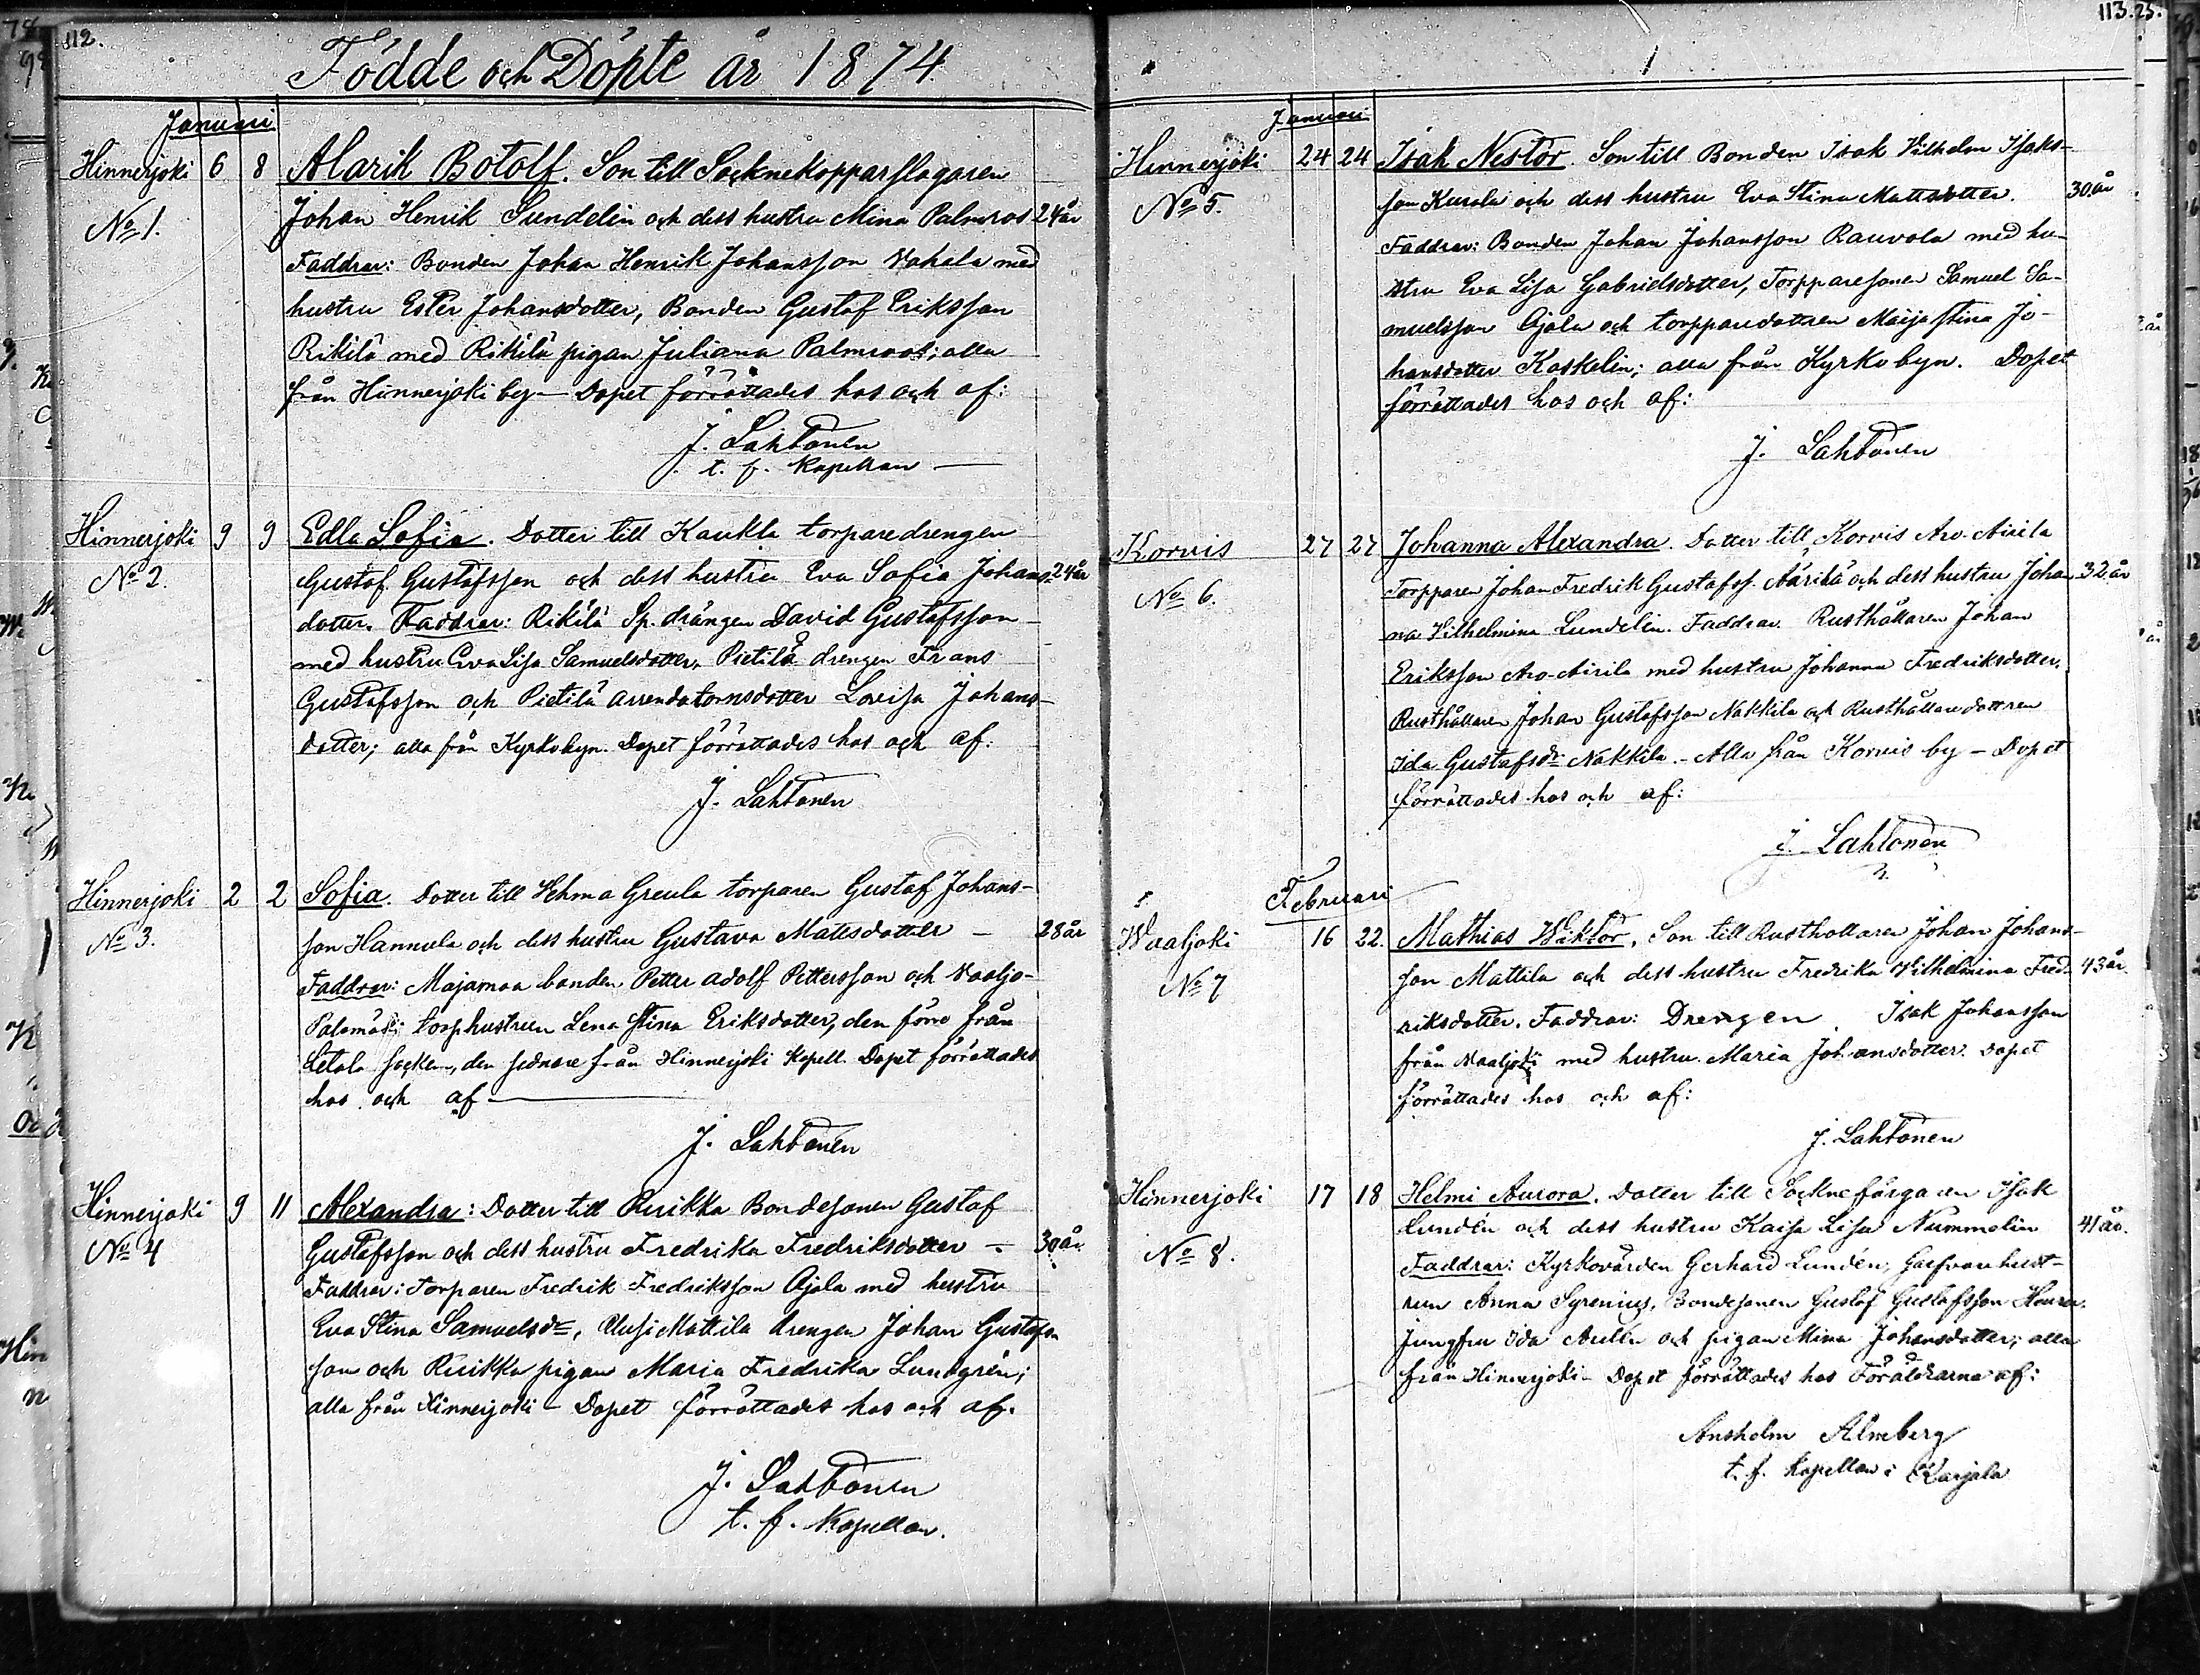 112.
Födde och Döpte år 1874
Januari
Hinnerjoki 6 8 Alarik Botolf. Son till Socknekopparslagaren
No 1. Johan Henrik Sundelin och dess hustru Mina Palmros 24 år
Faddrar: Bonden Johan Henrik Johansson Vahala med
hustru Ester Johansdotter, Bonden Gustaf Eriksson
Rikilä med Rikilä pigan Juliana Palmroos; alla
från Hinnerjoki by – Dopet förrättades hos och af:
J. Lahtonen
t. f. Kapellan
Hinnerjoki 9 9 Edla Sofia. Dotter till Kaukla torparedrengen
No 2. Gustaf Gustafsson och dess hustru Eva Sofia Johans- 24 år
dotter. Faddrar: Rikilä Sp. drängen David Gustafsson
med hustru Eva Lisa Samuelsdotter, Pietilä drengen Frans
Gustafsson och Pietilä arrendatornsdotter Lovisa Johans-
dotter; alla från Kyrkobyn. Dopet förrättades hos och af:
J. Lahtonen
Hinnerjoki 2 2 Sofia. Dotter till Vehma Greula torparen Gustaf Johans-
No 3. son Hannula och dess hustru Gustava Mattsdotter – 28 år
Faddrar: Majamaa bonden Petter Adolf Pettersson och Vaaljo-
Palomäki torphustrun Lena Stina Eriksdotter, den förre från
Letala socken, den sednare från Hinnerjoki Kapell. Dopet förrättades
hos och af
J. Lahtonen
Hinnerjoki 9 11 Alexandra: Dotter till Ruikka Bondesonen Gustaf
No 4 Gustafsson och dess hustru Fredrika Fredriksdotter – 30 år.
Faddrar: Torparen Fredrik Fredriksson Ojala med hustru
Eva Stina Samuelsdr, Uusi Mattila drengen Johan Gustafs-
son och Ruikka pigan Maria Fredrika Lundgrén;
alla från Hinnerjoki – Dopet förrättades hos och af.
J. Lahtonen
t. f. Kapellan.
113. 25.
Januari
Hinnerjoki 24 24 Isak Nestor. Son till Bonden Isak Vilhelm Isaks-
No 5. son Kurala och dess hustru Eva Stina Mattsdotter. 30 år
Faddrar: Bonden Johan Johansson Rauvola med hu-
stru Eva Lisa Gabrielsdotter, Torpparesonen Samuel Sa-
muelsson Ojala och torpparedottren Maija Stina Jo-
hansdotter Kaskelin; alla från Kyrkobyn. Dopet
förrättades hos och af:
J. Lahtonen
Korvis 27 27 Johanna Alexandra. Dotter till Korvis Aro-Airila
No 6. Torpparen Johan Fredrik Gustafss. Äärilä och dess hustru Johan- 32 år
na Vilhelmina Lundelin. Faddrar Rusthållaren Johan
Eriksson Aro-Airila med hustru Johanna Fredriksdotter,
Rusthållaren Johan Gustafsson Nakkila och Rusthållaredottren
Ida Gustafsdr Nakkila. – Alla från Korvis by – Dopet
förrättades hos och af:
J. Lahtonen
Februari
Waaljoki 16 22. Mathias Wiktor. Son till Rusthollaren Johan Johans-
No 7 son Mattila och dess hustru Fredrika Vilhelmina Fred- 43 år.
riksdotter. Faddrar: Drengen Isak Johansson
från Vaaljoki med hustru Maria Johansdotter. Dopet
förrättades hos och af:
J. Lahtonen
Hinnerjoki 17 18 Helmi Aurora. Dotter till Socknefärgaren Isak
No 8. Lundén och dess hustru Kaisa Lisa Nummelin 41 år.
Faddrar: Kyrkovärden Gerhard Lundén, Garfvarehust-
run Anna Syrenius, Bondesonen Gustaf Gustafsson
Jungfru Ida och pigan Mina Johansdotter; alla
från Hinnerjoki – Dopet förrättades hos Föräldrarna af:
Anshelm Almberg
t. f. Kapellan i Karjala